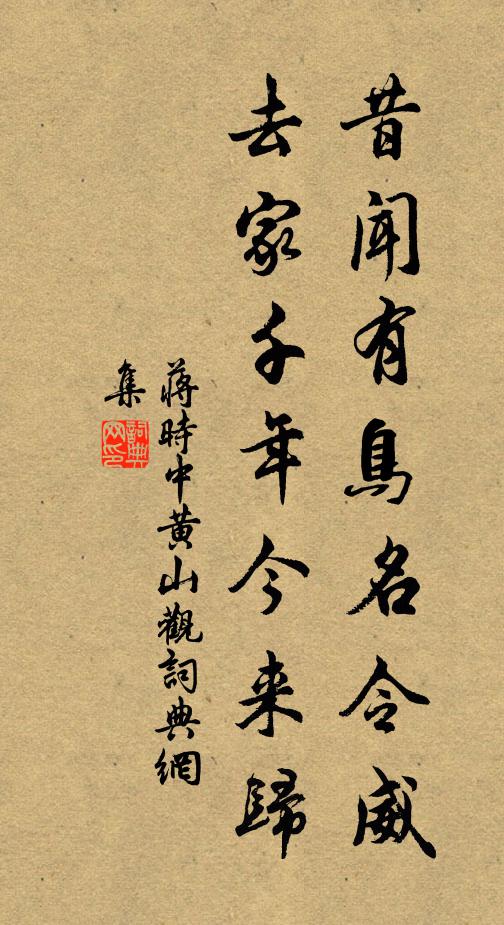 昔聞有鳥名令威
去家千年今来歸
蔣時中黄山觀詞典網
集
詞典網印